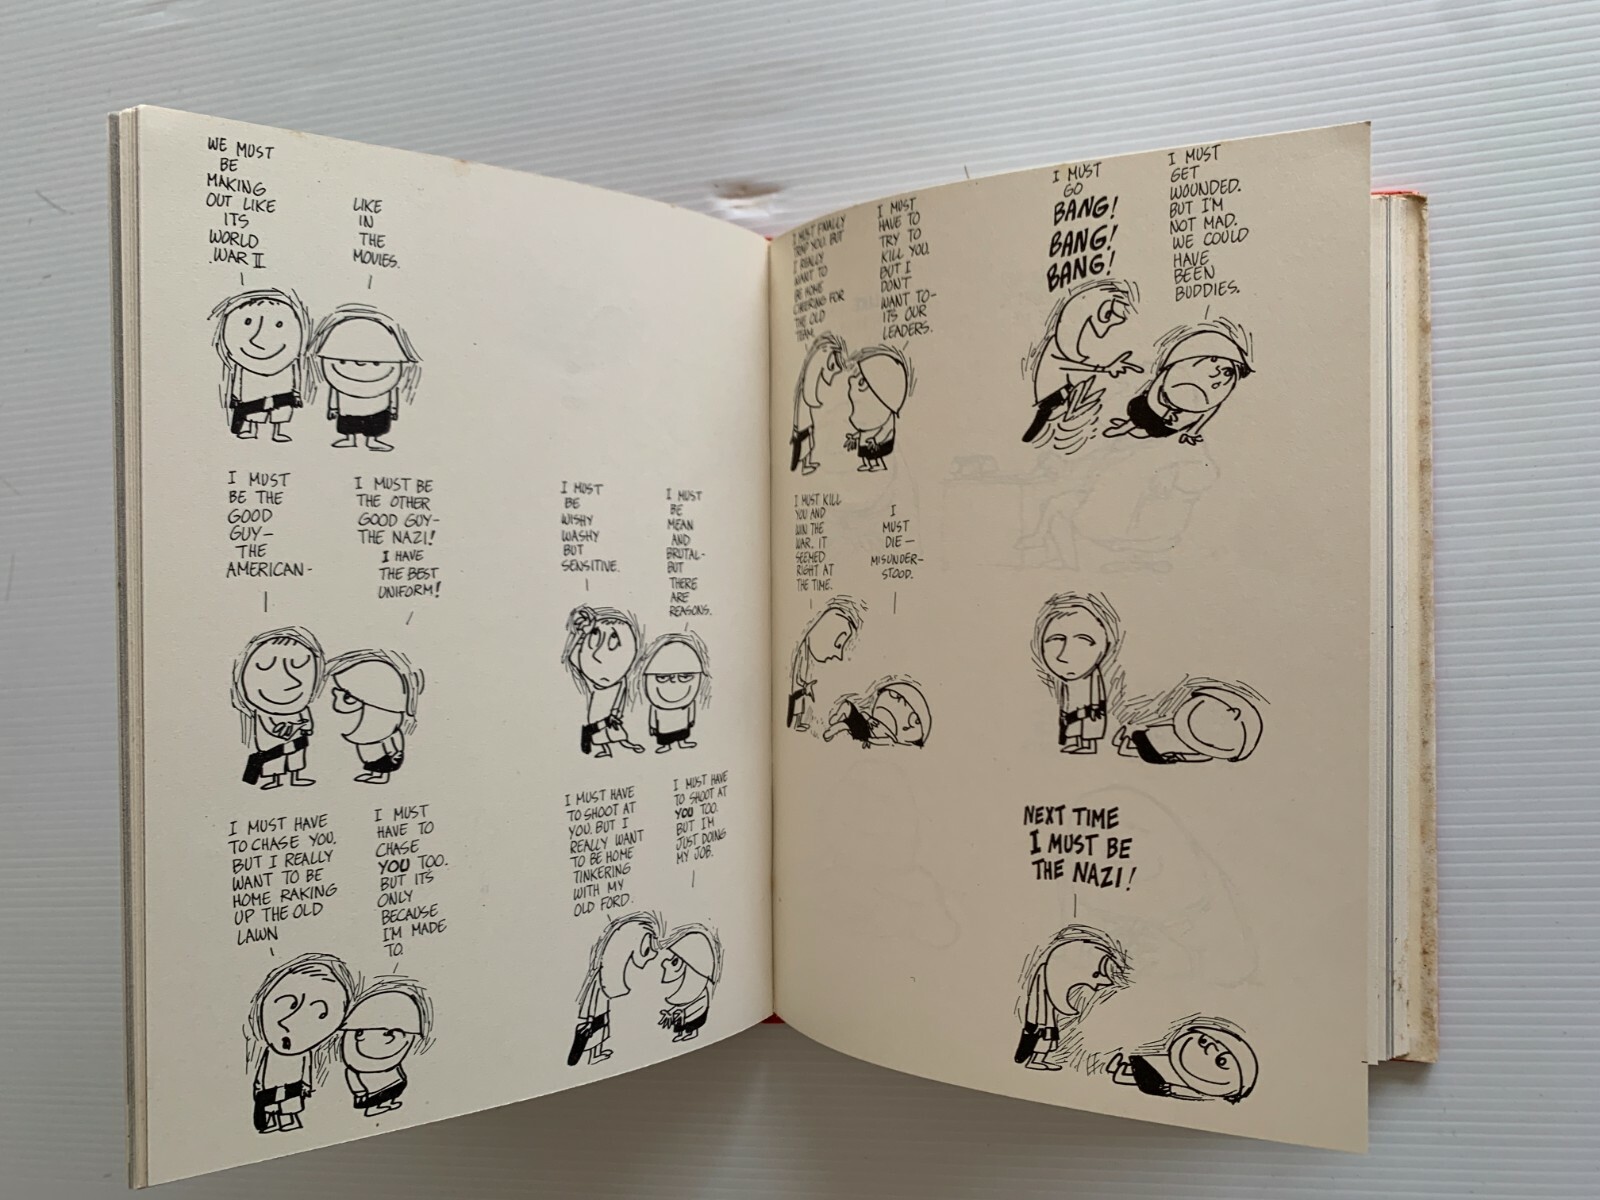 WE MUST
BE
MAKING
OUT LIKE
ITS
WORLD
WAR II
LIKE
IN
THE
MOVIES.
I MUST
BE THE
GOOD
GUY—
THE
AMERICAN-
I MUST BE
THE OTHER
GOOD GUY—
THE NAZI!
I HAVE
THE BEST
UNIFORM!
I MUST
BE
WISHY
WASHY
BUT
SENSITIVE.
I MUST
BE
MEAN
AND
BRUTAL-
BUT
THERE
ARE
REASONS.
I MUST HAVE
TO CHASE YOU.
BUT I REALLY
WANT TO BE
HOME RAKING
UP THE OLD
LAWN
I MUST
HAVE TO
CHASE
YOU TOO.
BUT ITS
ONLY
BECAUSE
I'M MADE
TO.
I MUST HAVE
TO SHOOT AT
YOU. BUT I
REALLY WANT
TO BE HOME
TINKERING
WITH MY
OLD FORD.
I MUST HAVE
TO SHOOT AT
YOU TOO.
BUT I'M
JUST DOING
MY JOB.
I MUST FINALLY
TRAP YOU. BUT
I REALLY
WANT TO
BE HOME
CHEERING FOR
THE OLD
TEAM.
I MUST
HAVE TO
TRY TO
KILL YOU.
BUT I
DON'T
WANT TO—
ITS OUR
LEADERS.
I MUST
GO
BANG!
BANG!
BANG!
I MUST
GET
WOUNDED.
BUT I'M
NOT MAD.
WE COULD
HAVE
BEEN
BUDDIES.
I MUST KILL
YOU AND
WIN THE
WAR. IT
SEEMED
RIGHT AT
THE TIME.
I
MUST
DIE—
MISUNDER-
STOOD.
NEXT TIME
I MUST BE
THE NAZI!